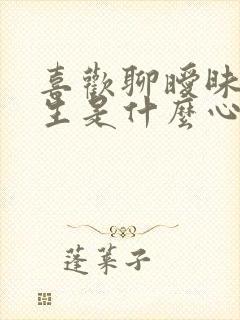 喜歡聊曖昧
生是什麼心
蓬萊子